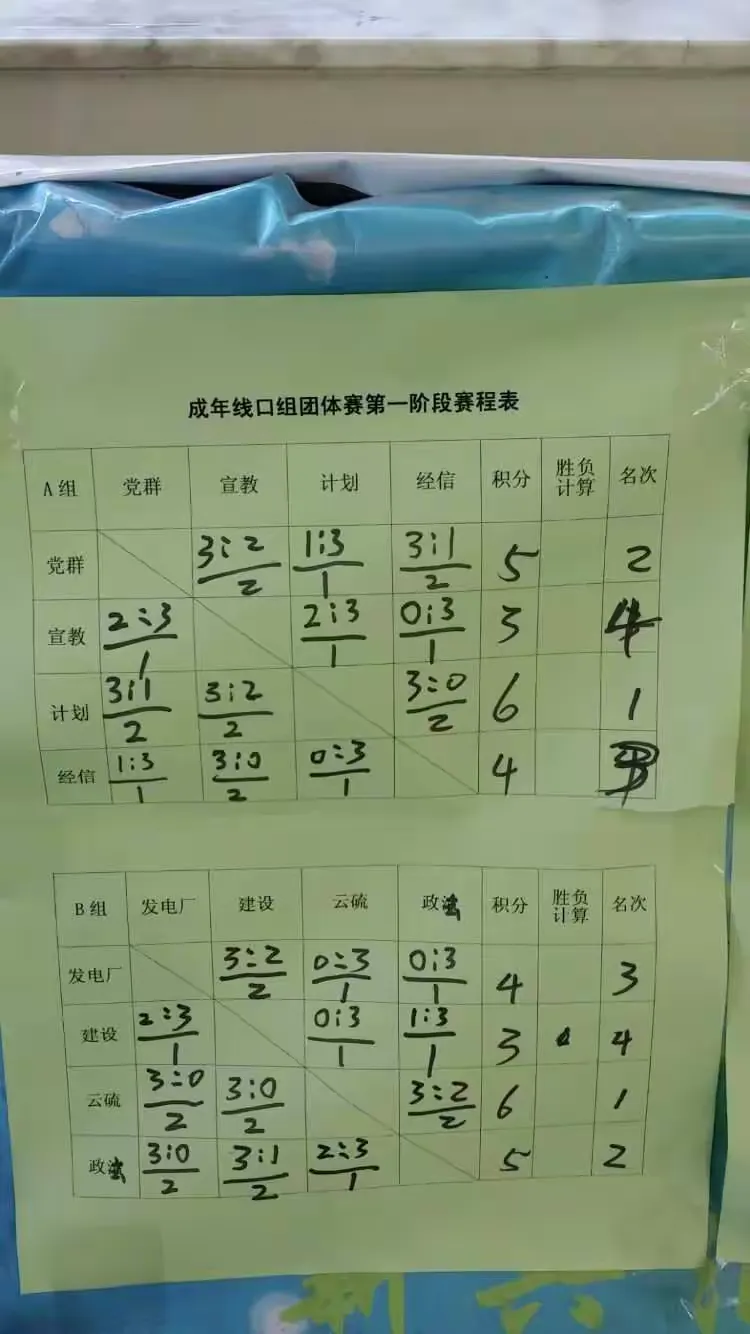 成年线口组团体赛第一阶段赛程表
A组 党群 宣教 计划 经信 积分 胜负计算 名次
党群 3:2/2 1:3/1 3:1/2 5 2
宣教 2:3/1 2:3/1 0:3/1 3 4
计划 3:1/2 3:2/2 3:0/2 6 1
经信 1:3/1 3:0/2 0:3/1 4
B组 发电厂 建设 云硫 政法 积分 胜负计算 名次
发电厂 3:2/2 0:3/1 0:3/1 4 3
建设 2:3/1 0:3/1 1:3/1 3 4
云硫 3:0/2 3:0/2 3:2/2 6 1
政法 3:0/2 3:1/2 2:3/1 5 2